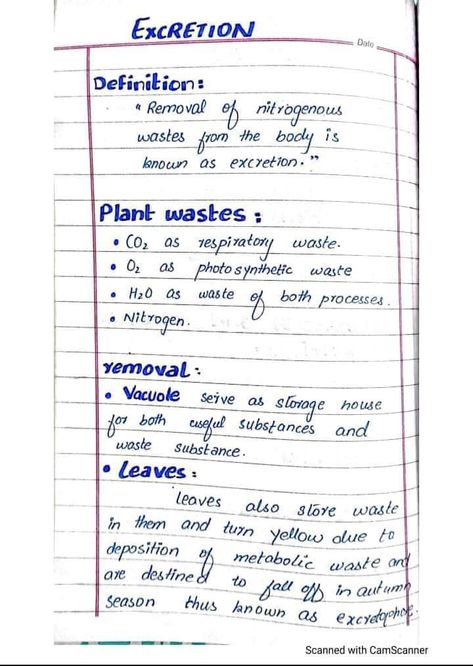 EXCRETION
Date
Definition:
"Removal of nitrogenous
wastes from the body is
known as excretion."
Plant wastes:
• CO₂ as respiratory waste.
• O₂ as photosynthetic waste
• H₂O as waste of both processes.
• Nitrogen.
removal:
• Vacuole serve as storage house
for both useful substances and
waste substance.
• Leaves:
leaves also store waste
in them and turn yellow due to
deposition of metabolic waste and
are destined to fall off in autumn
season thus known as
Scanned with CamScanner